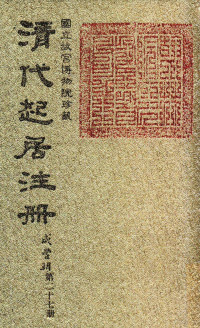 國立故宮博物院珍藏
清代起居注冊
咸豐朝第二十七冊